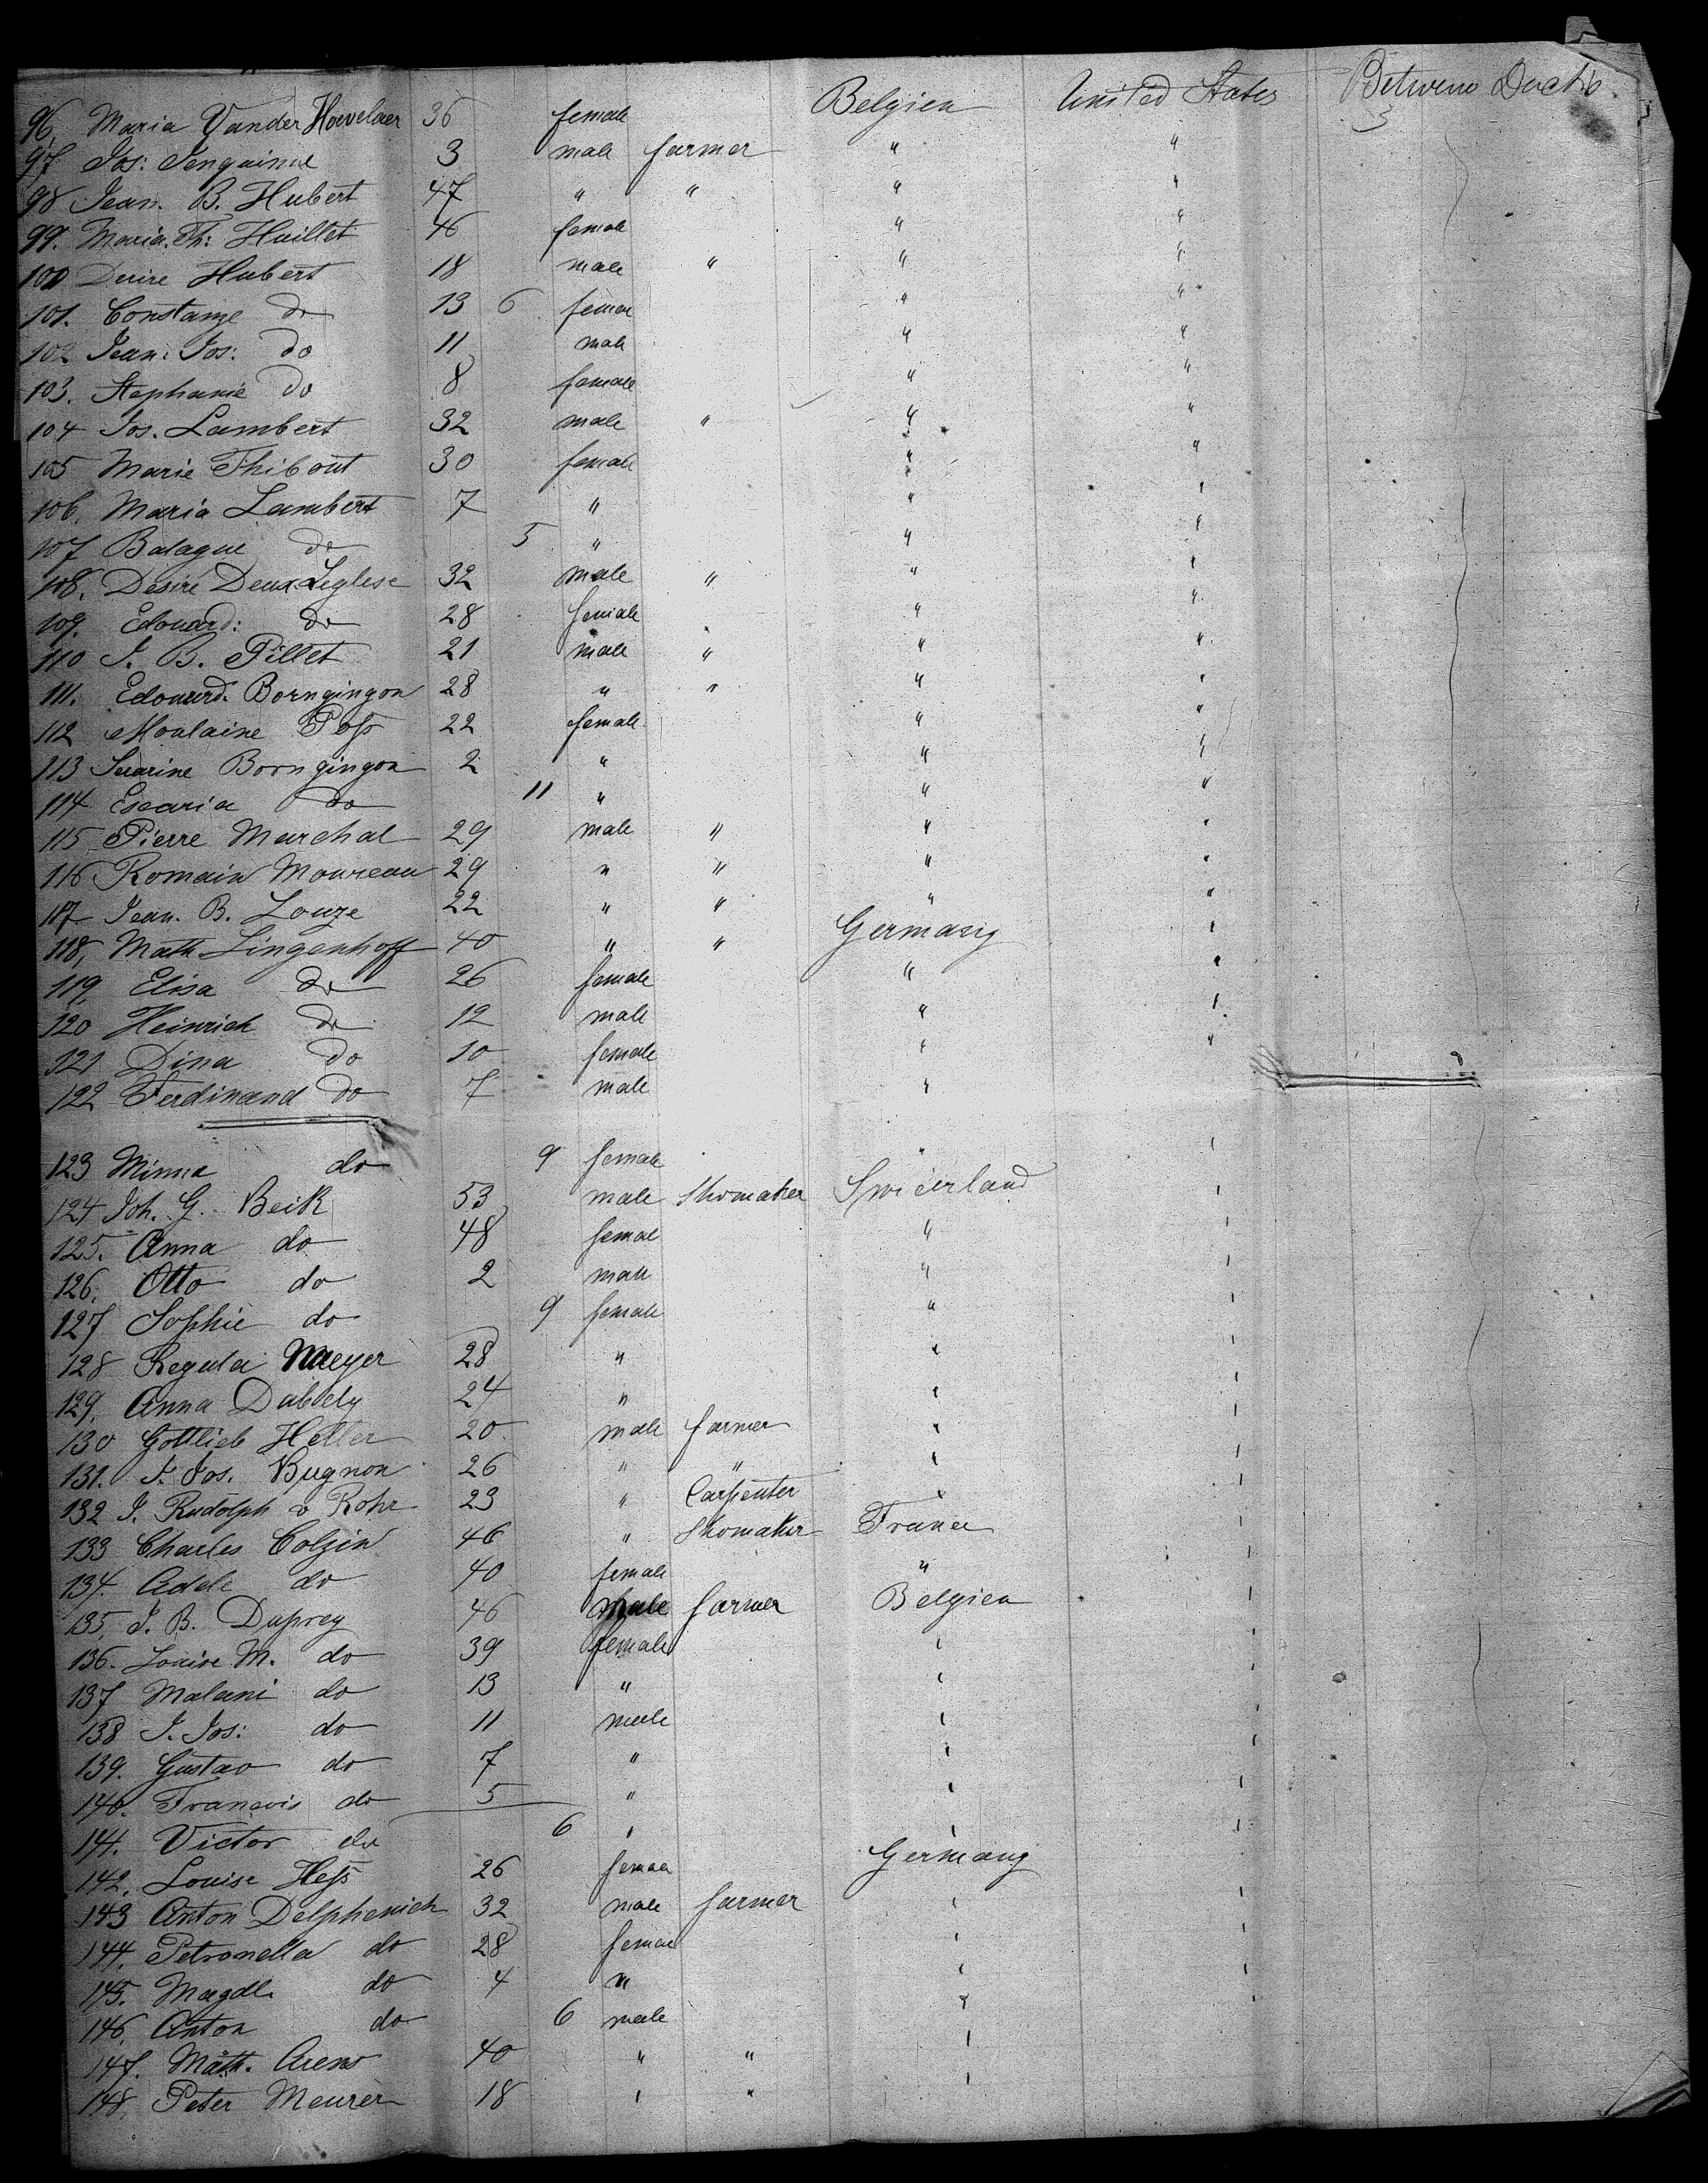 96. Maria Vander Hoevelaer 36 female Belgien United States Between Decks
97 Jos: Jenquinne 3 male farmer " "
98 Jean. B. Hubert 47 " " " "
99. Maria. Th: Huillet 46 female " "
100 Desire Hubert 18 male " " "
101. Constanze do 13 6 female " "
102 Jean: Jos: do 11 male " "
103. Stephanie do 8 female " "
104 Jos. Lambert 32 male " " "
105 Marie Thibout 30 female " "
106. Maria Lambert 7 " " "
107 Balague do 5 " " "
108. Desire Deux Leglese 32 male " " "
109. Edouard: do 28 female " "
110 J. B. Pillet 21 male " " "
111. Edouard. Borngingon 28 " " " "
112 Moulaine Poss 22 female " "
113 Borngingon 2 " " "
114 Esearia do 11 " " "
115 Pierre Marchal 29 male " " "
116 Romain Moureau 29 " " " "
117 Jean. B. Louze 22 " " " "
118, Math Lingenhoff 40 " " Germany "
119, Elisa do 26 female " "
120 Heinrich do 12 male " "
121 Dina do 10 female " "
122 Ferdinand do 7 male "
123 Minna do 9 female " "
124 Joh. G. Beik 53 male Shomaker Swierland "
125. Anna do 48 femal " "
126. Otto do 2 male " "
127 Sophie do 9 female " "
128 Regula Meyer 28 " " "
129, Anna Dübbely 24 " " "
130 Gottlieb Heller 20 male farmer " "
131. J. Jos. Bugnon 26 " " " "
132 J. Rudolph v Rohr 23 " Carpenter " "
133 Charles Colzin 46 " Shomaker France "
134. Adele do 40 female " "
135, J. B. Duprey 46 male farmer Belgien "
136. Louise M. do 39 female " "
137 Malani do 13 " " "
138 J. Jos: do 11 male " "
139. Gustav do 7 " " "
140. Francois do 5 " " "
141. Victor do 6 " " "
142. Louise Hess 26 female Germany
143 Anton Delphenich 32 male farmer " "
144. Petronella do 28 female " "
145. Magdl. do 4 " " "
146, Anton do 6 male "
147. Math. Arens 40 " " "
148. Peter Meurer 18 " " "